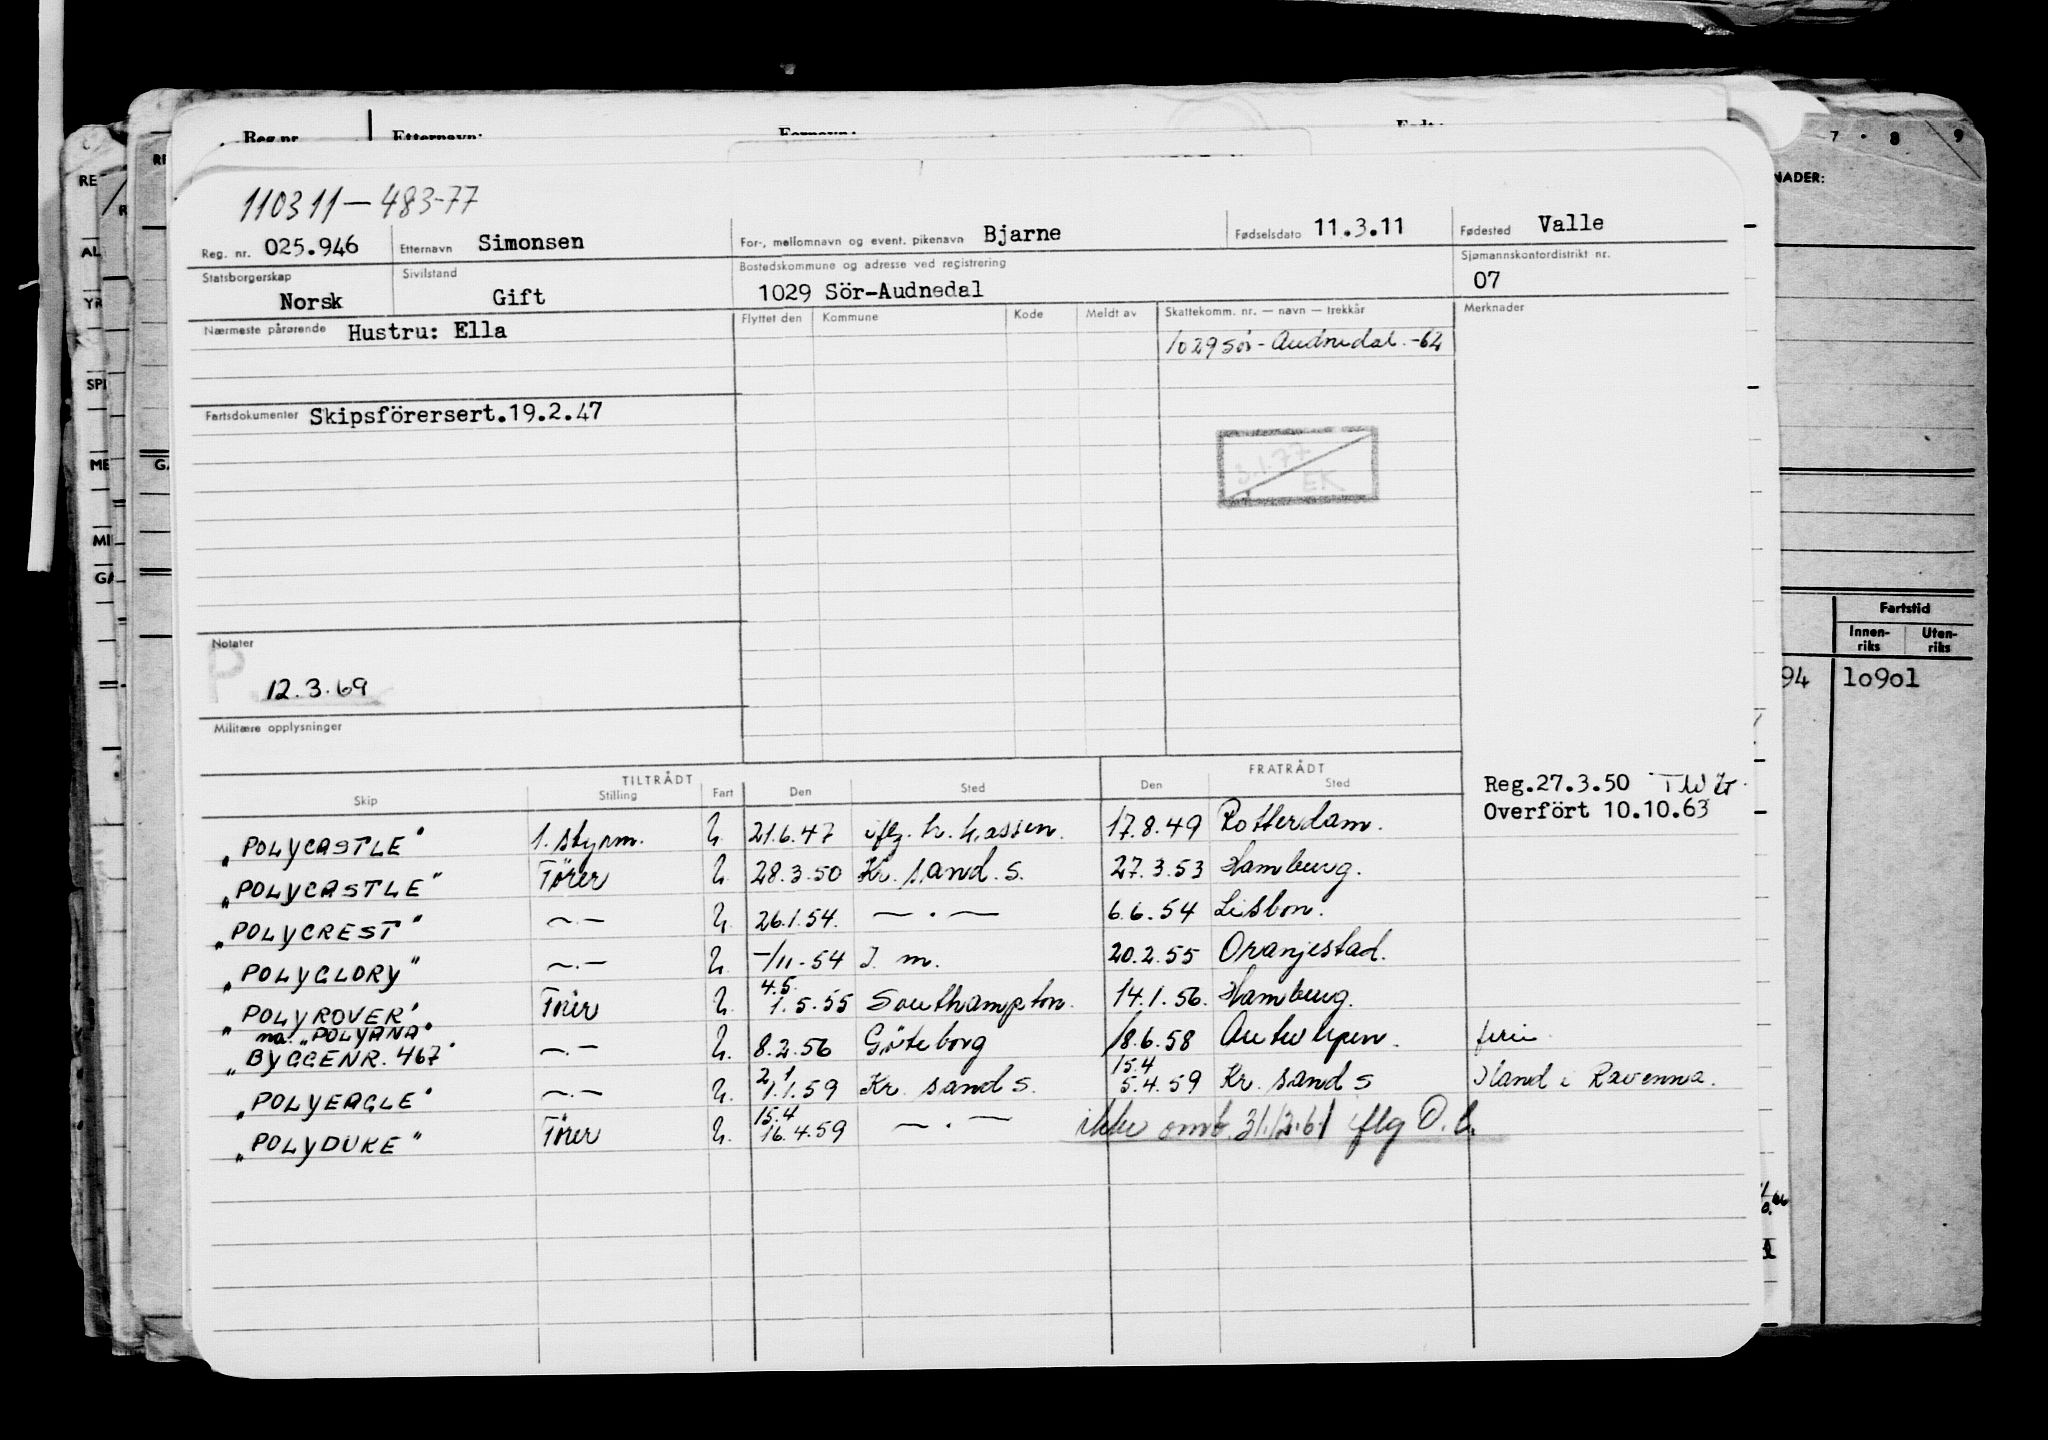 Reg.nr. Etternavn: Fornavn: Født:
7 · 8 9
110311-483-77
Reg. nr. 025.946 Etternavn Simonsen For-, mellomnavn og event. pikenavn Bjarne Fødselsdato 11.3.11 Fødested Valle
Statsborgerskap Norsk Sivilstand Gift Bostedskommune og adresse ved registrering 1029 Sör-Audnedal Sjømannskontordistrikt nr. 07
Nærmeste pårørende Hustru: Ella Flyttet den Kommune Kode Meldt av Skattekomm. nr. — navn — trekkår Merknader
1029 Sör-Audnedal.-64
Fartsdokumenter Skipsförersert.19.2.47
3.1.77 EK
Notater
P
12.3.69
Militære opplysninger
TILTRÅDT FRATRÅDT
Skip Stilling Fart Den Sted Den Sted
Reg.27.3.50
Overfört 10.10.63
"POLYCASTLE" 1. styrm. U. 21.6.47 iflg. h. hassen. 17.8.49 Rotterdam.
"POLYCASTLE" Förer U. 28.3.50 Kr. sand. S. 27.3.53 Hamburg.
"POLYCREST" —.— U. 26.1.54. —.— 6.6.54 Lisbon.
"POLYGLORY" —.— U. -/11-54 I. m. 20.2.55 Oranjestad.
"POLYROVER" Förer U. 4.5. 1.5.55 Southampton. 14.1.56. Hamburg.
na. "POLYANA"
"BYGGENR. 467" —.— U. 8.2.56 Göteborg 18.6.58 Antwerpen. ferie
"POLYEAGLE" —.— U. 2.1 1.1.59 Kr. sand S. 15.4 5.4.59 Kr. sand S Iland i Ravenna.
"POLYDUKE" Förer U. 15.4 16.4.59 —.— ikke omb. 31.12.61 iflg O.l.
NADER:
Fartstid
Innen-riks Uten-riks
94 10901